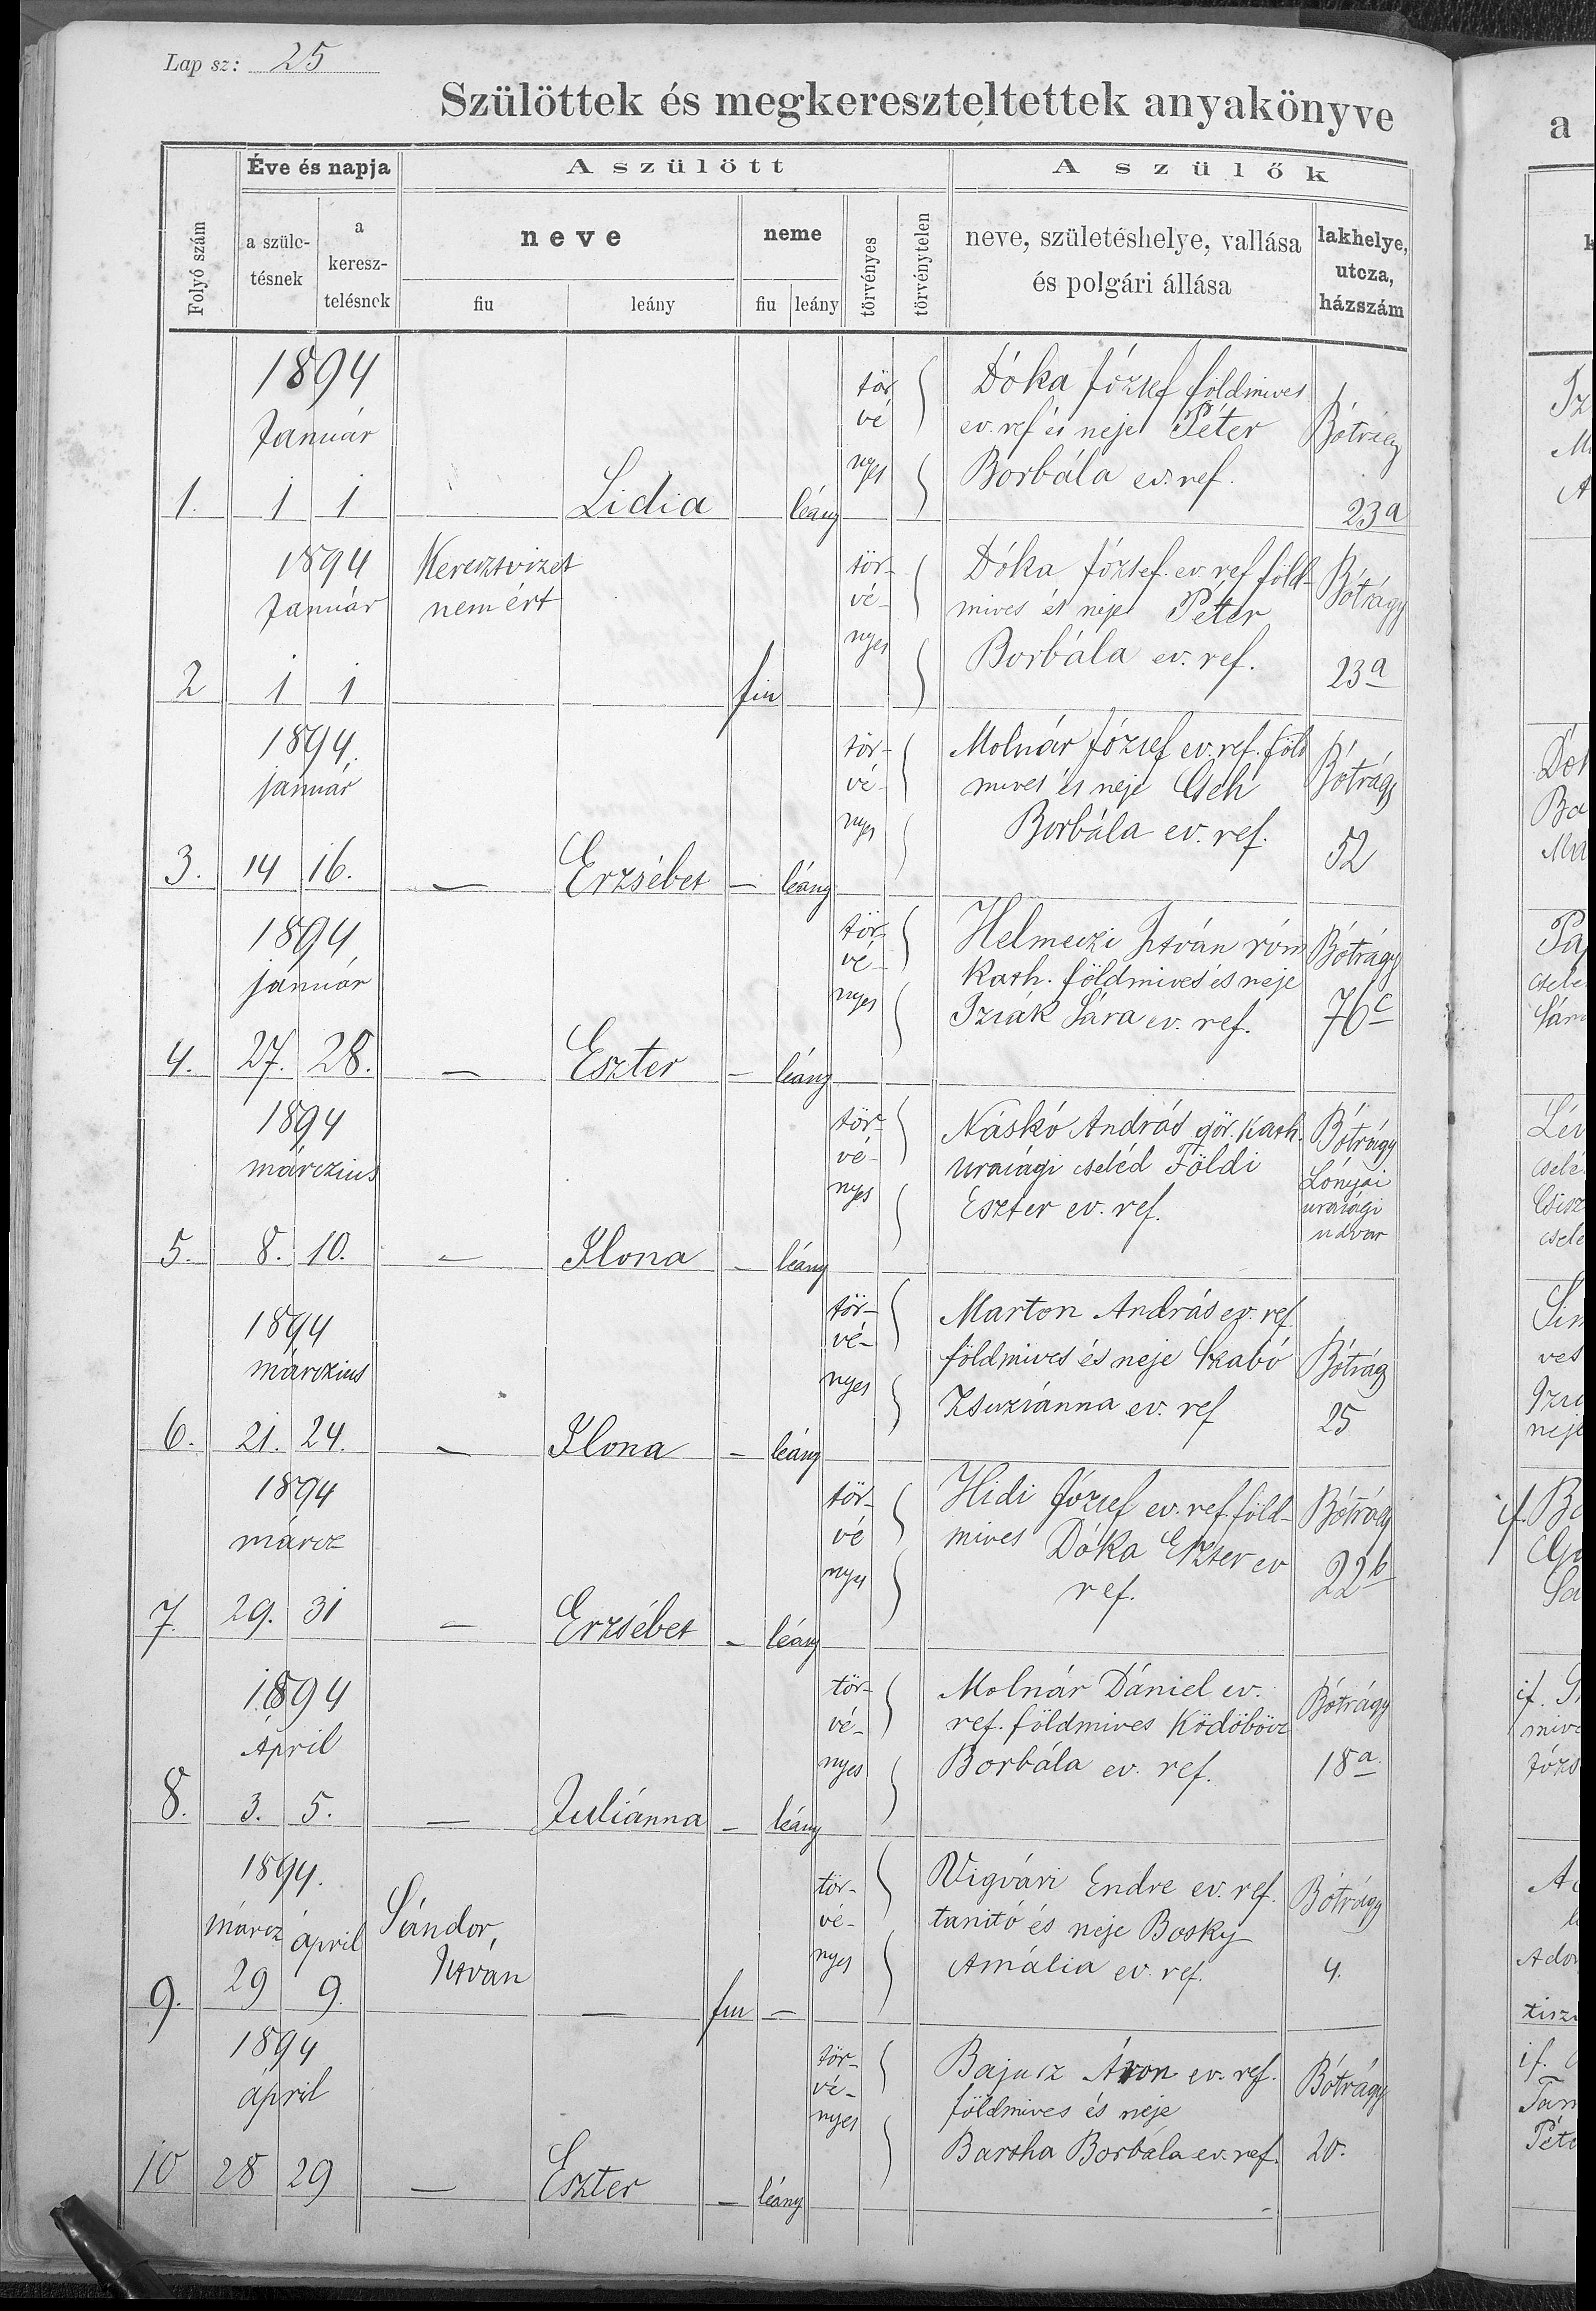 Lap sz: 25
Szülöttek és megkereszteltettek anyakönyve
Folyó szám
Éve és napja
a szüle-
tésnek
a
keresz-
telésnek
A szülött
neve
fiu
leány
neme
fiu
leány
törvényes
törvénytelen
A szülők
neve, születéshelye, vallása
és polgári állása
lakhelye,
utcza,
házszám
1894
Január
1. 1 1
Lidia
leány
tör
vé
nyes
Dóka József földmives
ev. ref és neje Péter
Borbála ev. ref.
Bótrágy
23a
1894
Január
2 1 1
Keresztvizet
nem ért
fiu
tör-
vé-
nyes
Dóka József. ev. ref föld-
mives és neje Péter
Borbála ev. ref.
Bótrágy
23a
1894.
január
3. 14 16.
— Erzsébet — leány
tör-
vé-
nyes
Molnár József ev. ref. föld
mives és neje Cseh
Borbála ev. ref.
Bótrágy
52
1894
január
4. 27. 28.
— Eszter — leány
tör-
vé-
nyes
Helmeczi István róm
Kath. földmives és neje
Izsák Sára ev. ref.
Bótrágy
76c
1894
márczius
5. 8. 10.
— Ilona — leány
tör-
vé-
nyes
Náskó András gör. Kath.
urasági cseléd Földi
Eszter ev. ref.
Bótrágy
Lónyai
urasági
udvar
1894
márczius
6. 21. 24.
— Ilona — leány
tör-
vé-
nyes
Marton András ev. ref.
földmives és neje Szabó
Zsuzsánna ev. ref
Bótrágy
25
1894
márcz
7. 29. 31
— Erzsébet — leány
tör-
vé
nyes
Hidi József ev. ref. föld-
mives Dóka Eszter ev
ref.
Bótrágy
22b
1894
Ápril
8. 3. 5.
— Juliánna — leány
tör-
vé-
nyes
Molnár Dániel ev.
ref. földmives Ködöböcz
Borbála ev. ref.
Bótrágy
18a
1894.
márcz ápril
9. 29 9.
Sándor,
István
— fiu —
tör-
vé-
nyes
Vigvári Endre ev. ref.
tanitó és neje Bosky
Amália ev. ref.
Bótrágy
4.
1894
ápril
10 28 29
— Eszter — leány
tör-
vé-
nyes
Bajusz Áron ev. ref.
földmives és neje
Bartha Borbála ev. ref.
Bótrágy
20.
a